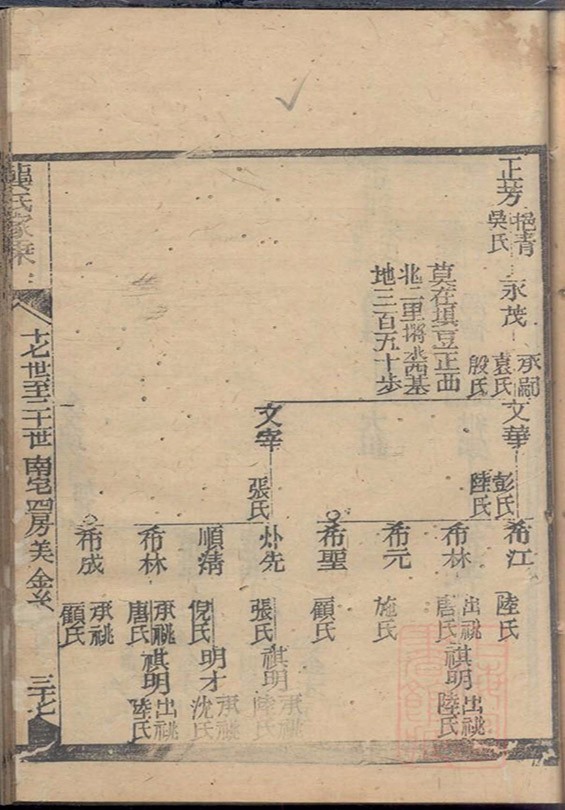 正芳
挹青
吳氏
永茂
承嗣
袁氏
殷氏
莫在填豆正西
北二里
地三百五十步
文華
彭氏
陸氏
文宰
張氏
希江
陸氏
希林
出祧
唐氏
祺明
出祧
陸氏
希元
施氏
希聖
顧氏
外先
張氏
祺明
承祧
陸氏
順
倪氏
明才
承祧
沈氏
希林
承祧
唐氏
祺明
出祧
陸氏
希成
承祧
顧氏
龔氏家乘
十七世至二十世 南宅四房美
三十七